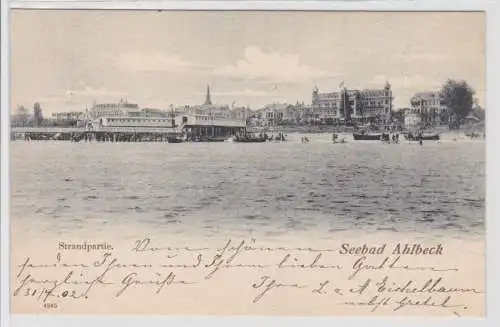 Strandpartie.
Seebad Ahlbeck
Vom schönen
senden Ihnen und Ihrem lieben Gatten
herzliche Grüße
31/7 02.
Ihre L. u. A. Eichelbaum
nebst Gretel.
4945